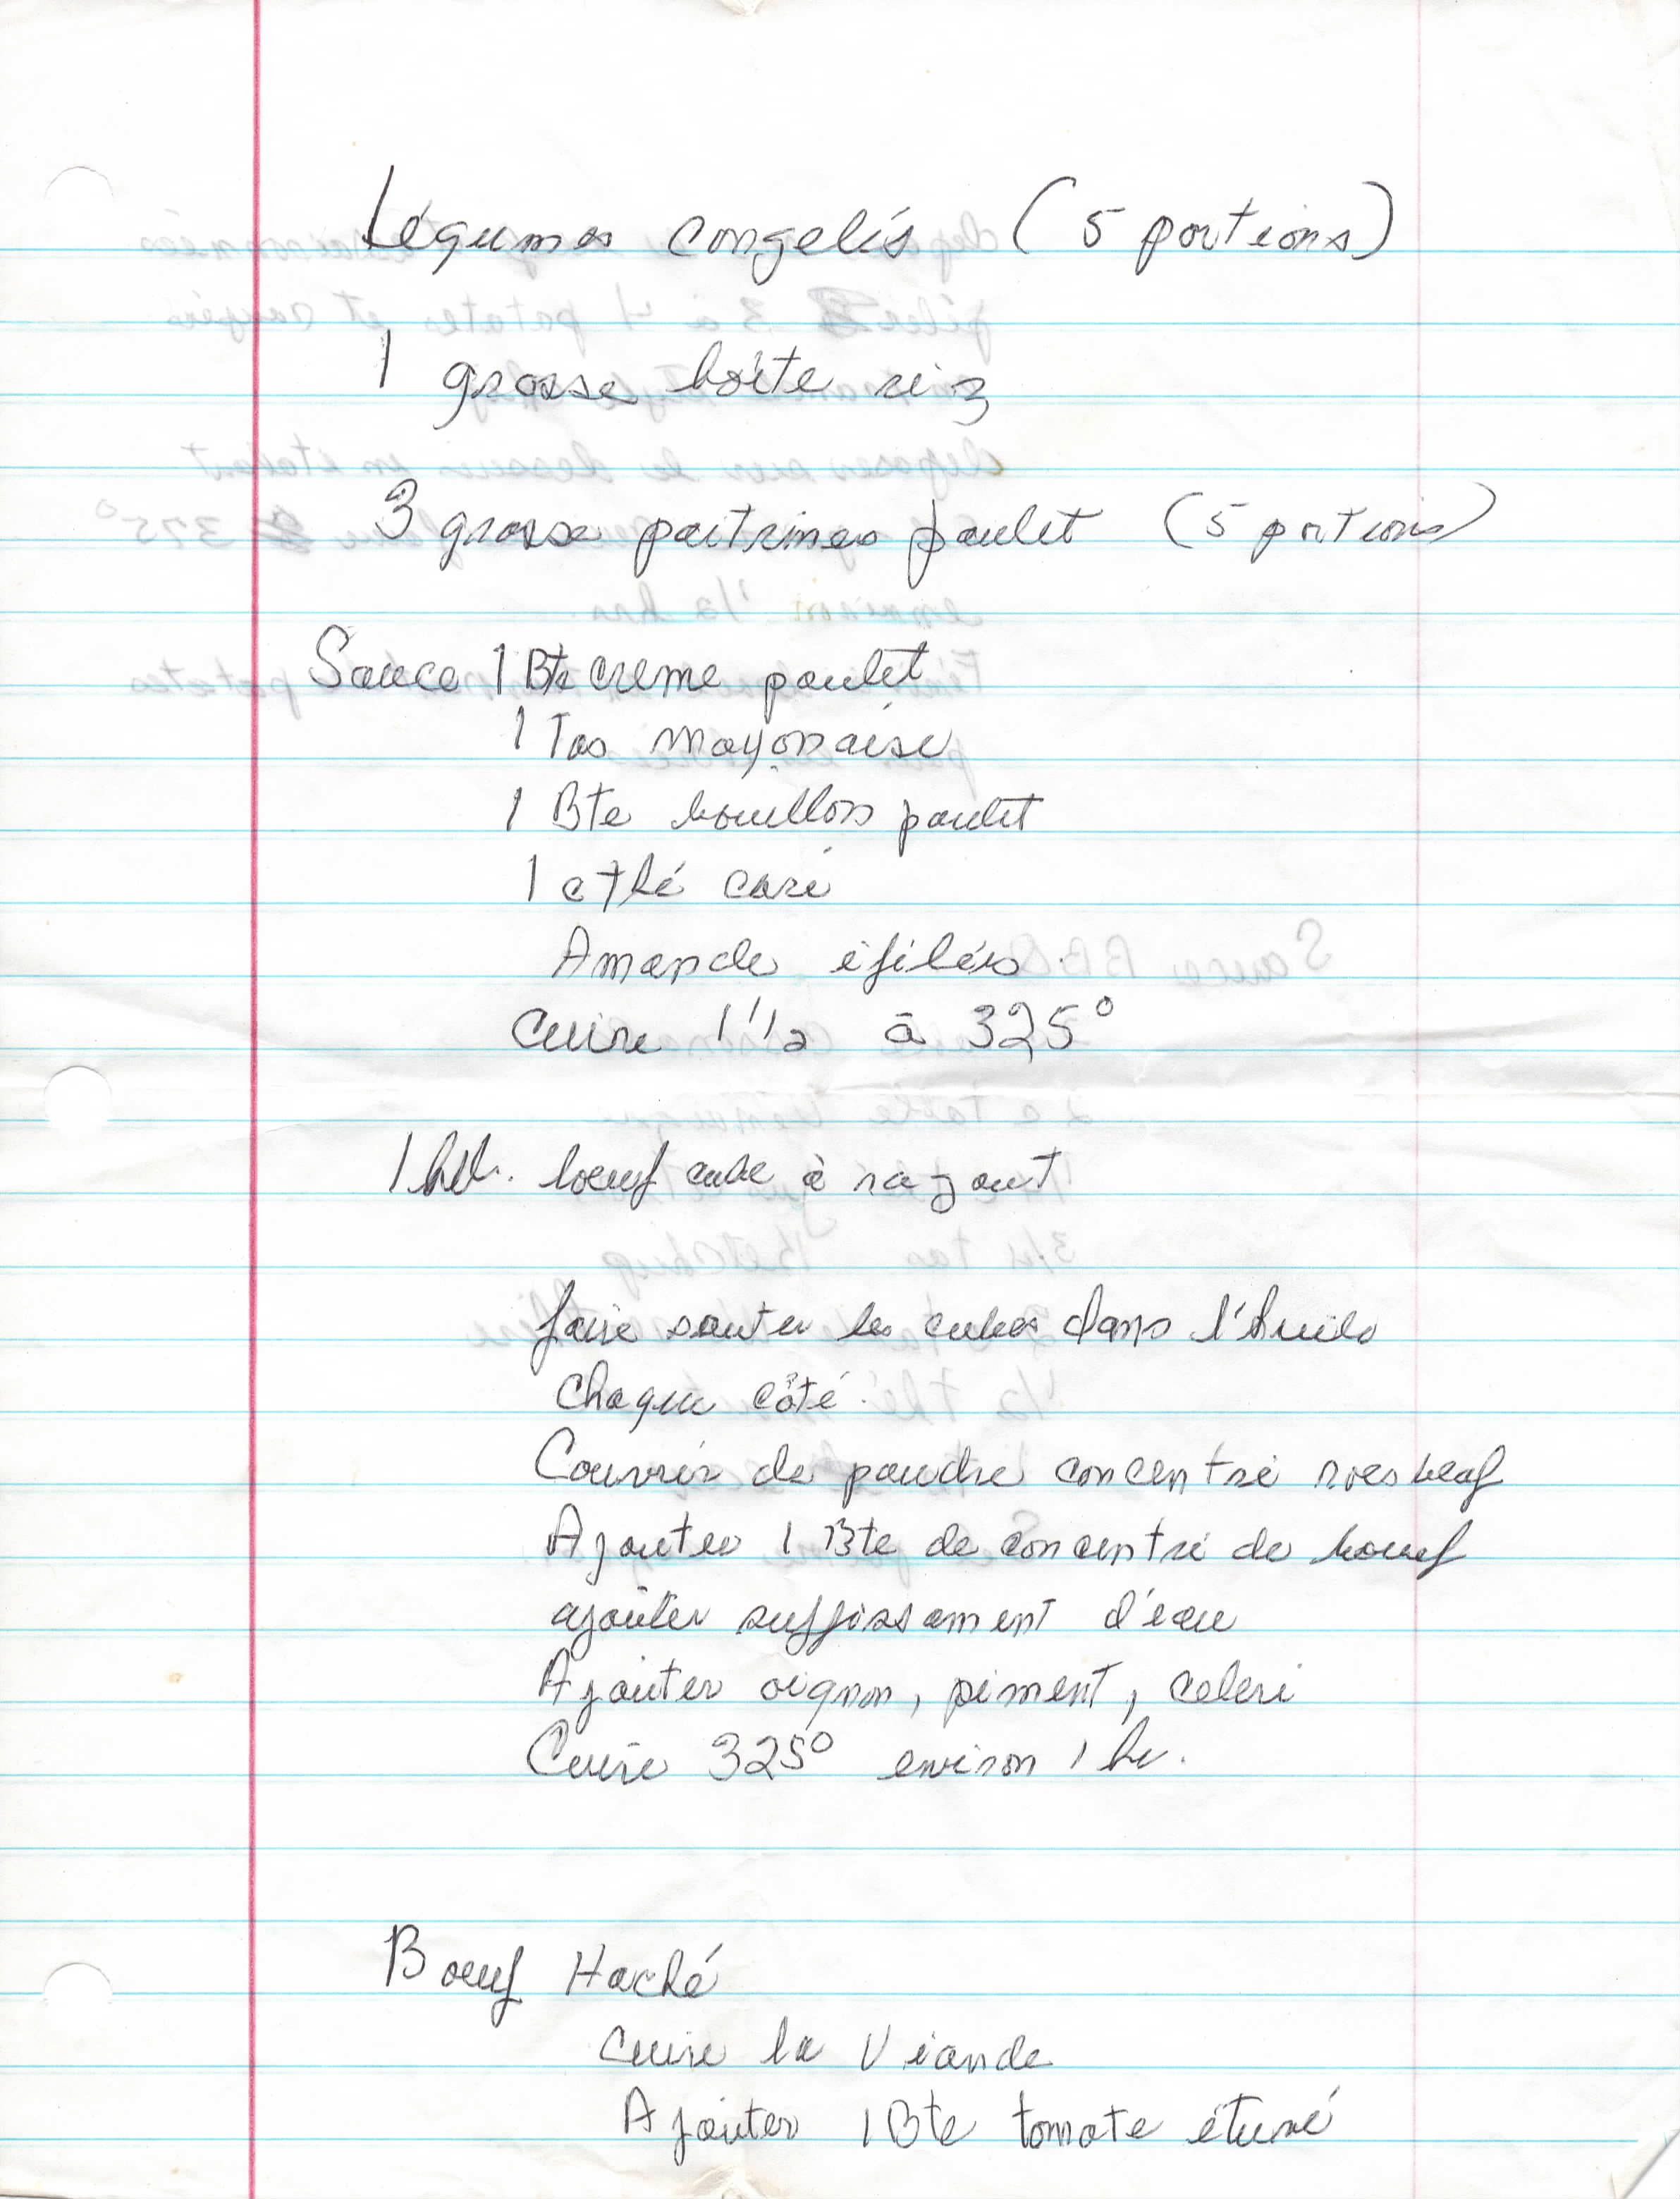 Légumes congelés (5 portions)
1 grosse boîte riz
3 grosse poitrines poulet (5 portions)
Sauce 1 Bte creme poulet
1 Tas mayonaise
1 Bte bouillon poulet
1 c thé cari
Amande éfilées
Cuire 1 1/2 à 325°
1 boeuf cube à ragout
faire sauter les cubes dans l'huile
chaque côté.
Couvrir de poudre concentré rosbeaf
Ajouter 1 Bte de concentré de boeuf
ajouter suffissament d'eau
Ajouter oignon, piment, celeri
Cuire 325° environ 1 hr.
Boeuf Haché
Cuire la Viande
Ajouter 1 Bte tomate étuvé